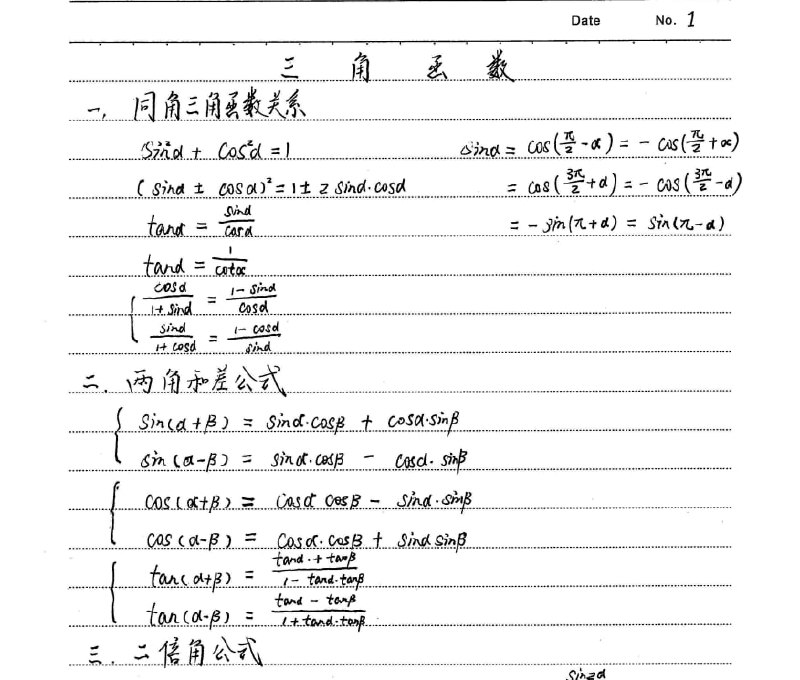 Date No. 1
三角函数
一、同角三角函数关系
sin²α + cos²α = 1
(sinα ± cosα)² = 1 ± 2 sinα·cosα
tanα = sinα/cosα
tanα = 1/cotα
cosα/(1+sinα) = (1-sinα)/cosα
sinα/(1+cosα) = (1-cosα)/sinα
sinα = cos(π/2-α) = -cos(π/2+α)
= cos(3π/2+α) = -cos(3π/2-α)
= -sin(π+α) = sin(π-α)
二. 两角和差公式
sin(α+β) = sinα·cosβ + cosα·sinβ
sin(α-β) = sinα·cosβ - cosα·sinβ
cos(α+β) = cosα cosβ - sinα·sinβ
cos(α-β) = cosα·cosβ + sinα sinβ
tan(α+β) = (tanα·+tanβ)/(1-tanα·tanβ)
tan(α-β) = (tanα-tanβ)/(1+tanα·tanβ)
三. 二倍角公式
sin2α